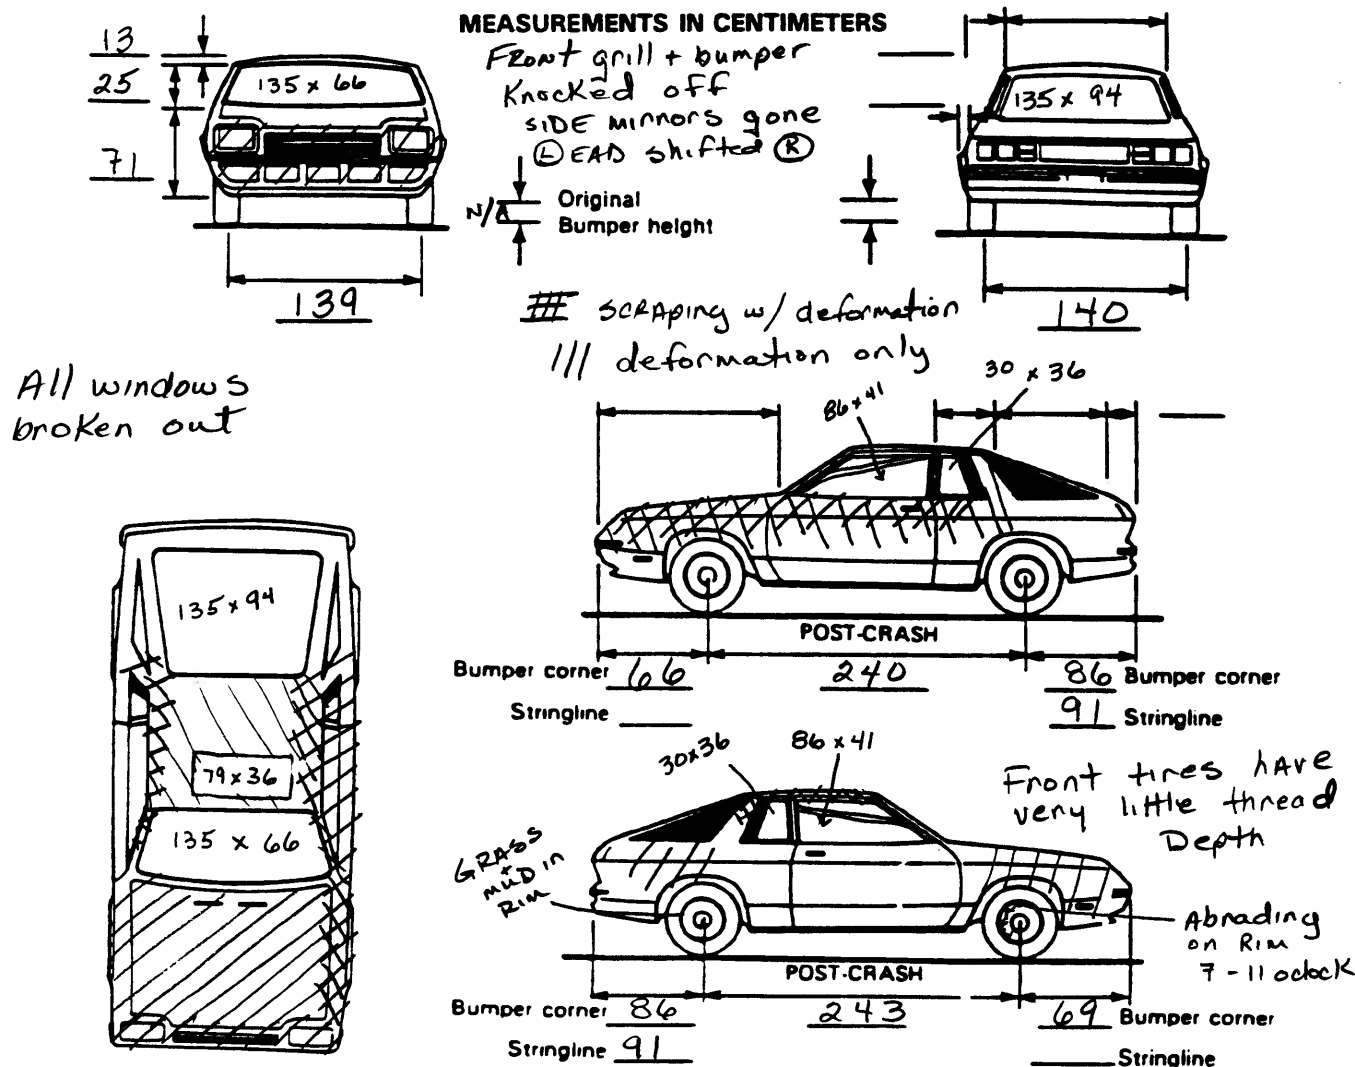 MEASUREMENTS IN CENTIMETERS
13
25
71
135 x 66
139
Front grill + bumper
Knocked off
SIDE mirrors gone
Ⓛ EAD shifted Ⓡ
N/A
Original
Bumper height
135 x 94
140
# SCRAping w/ deformation
/// deformation only
All windows
broken out
86 x 41
30 x 36
POST-CRASH
Bumper corner 66
240
86 Bumper corner
Stringline
91 Stringline
135 x 94
79 x 36
135 x 66
30 x 36
86 x 41
Front tires hAve
very little thread
Depth
GRASS
+
MUD in
RIM
Abrading
on Rim
7 - 11 oclock
POST-CRASH
Bumper corner 86
243
69 Bumper corner
Stringline 91
Stringline